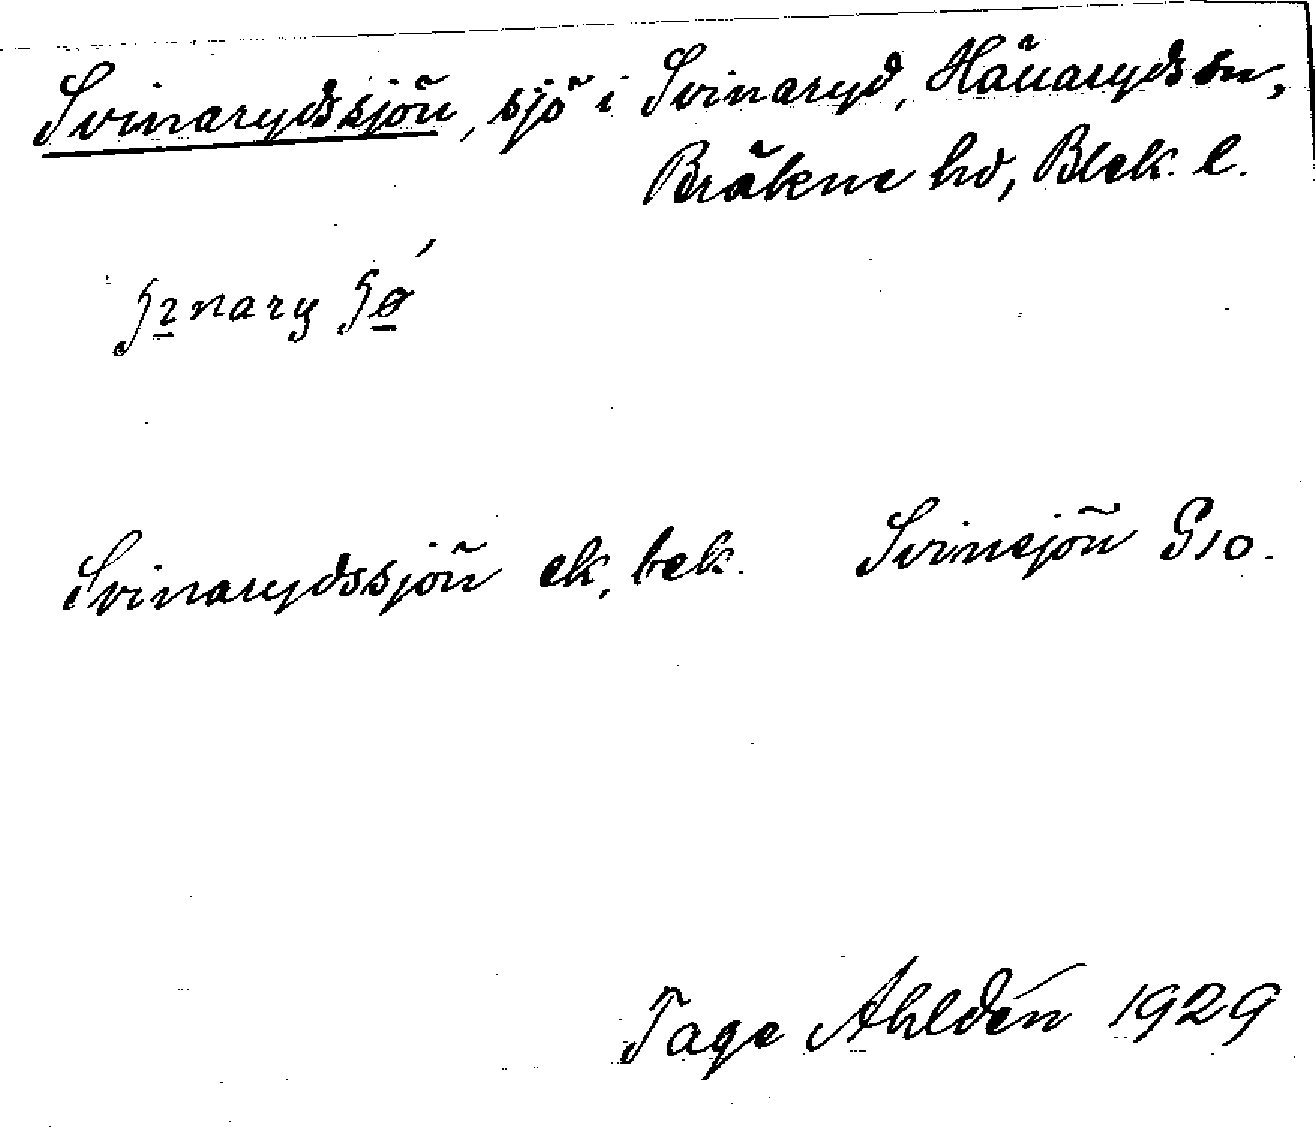 Svinarydssjön, sjö i Svinaryd, Hällaryds sn,
Bräkne hd, Blek. l.
Svinarydssjön ek, bek. Svinsjön G10.
Tage Ahldén 1929